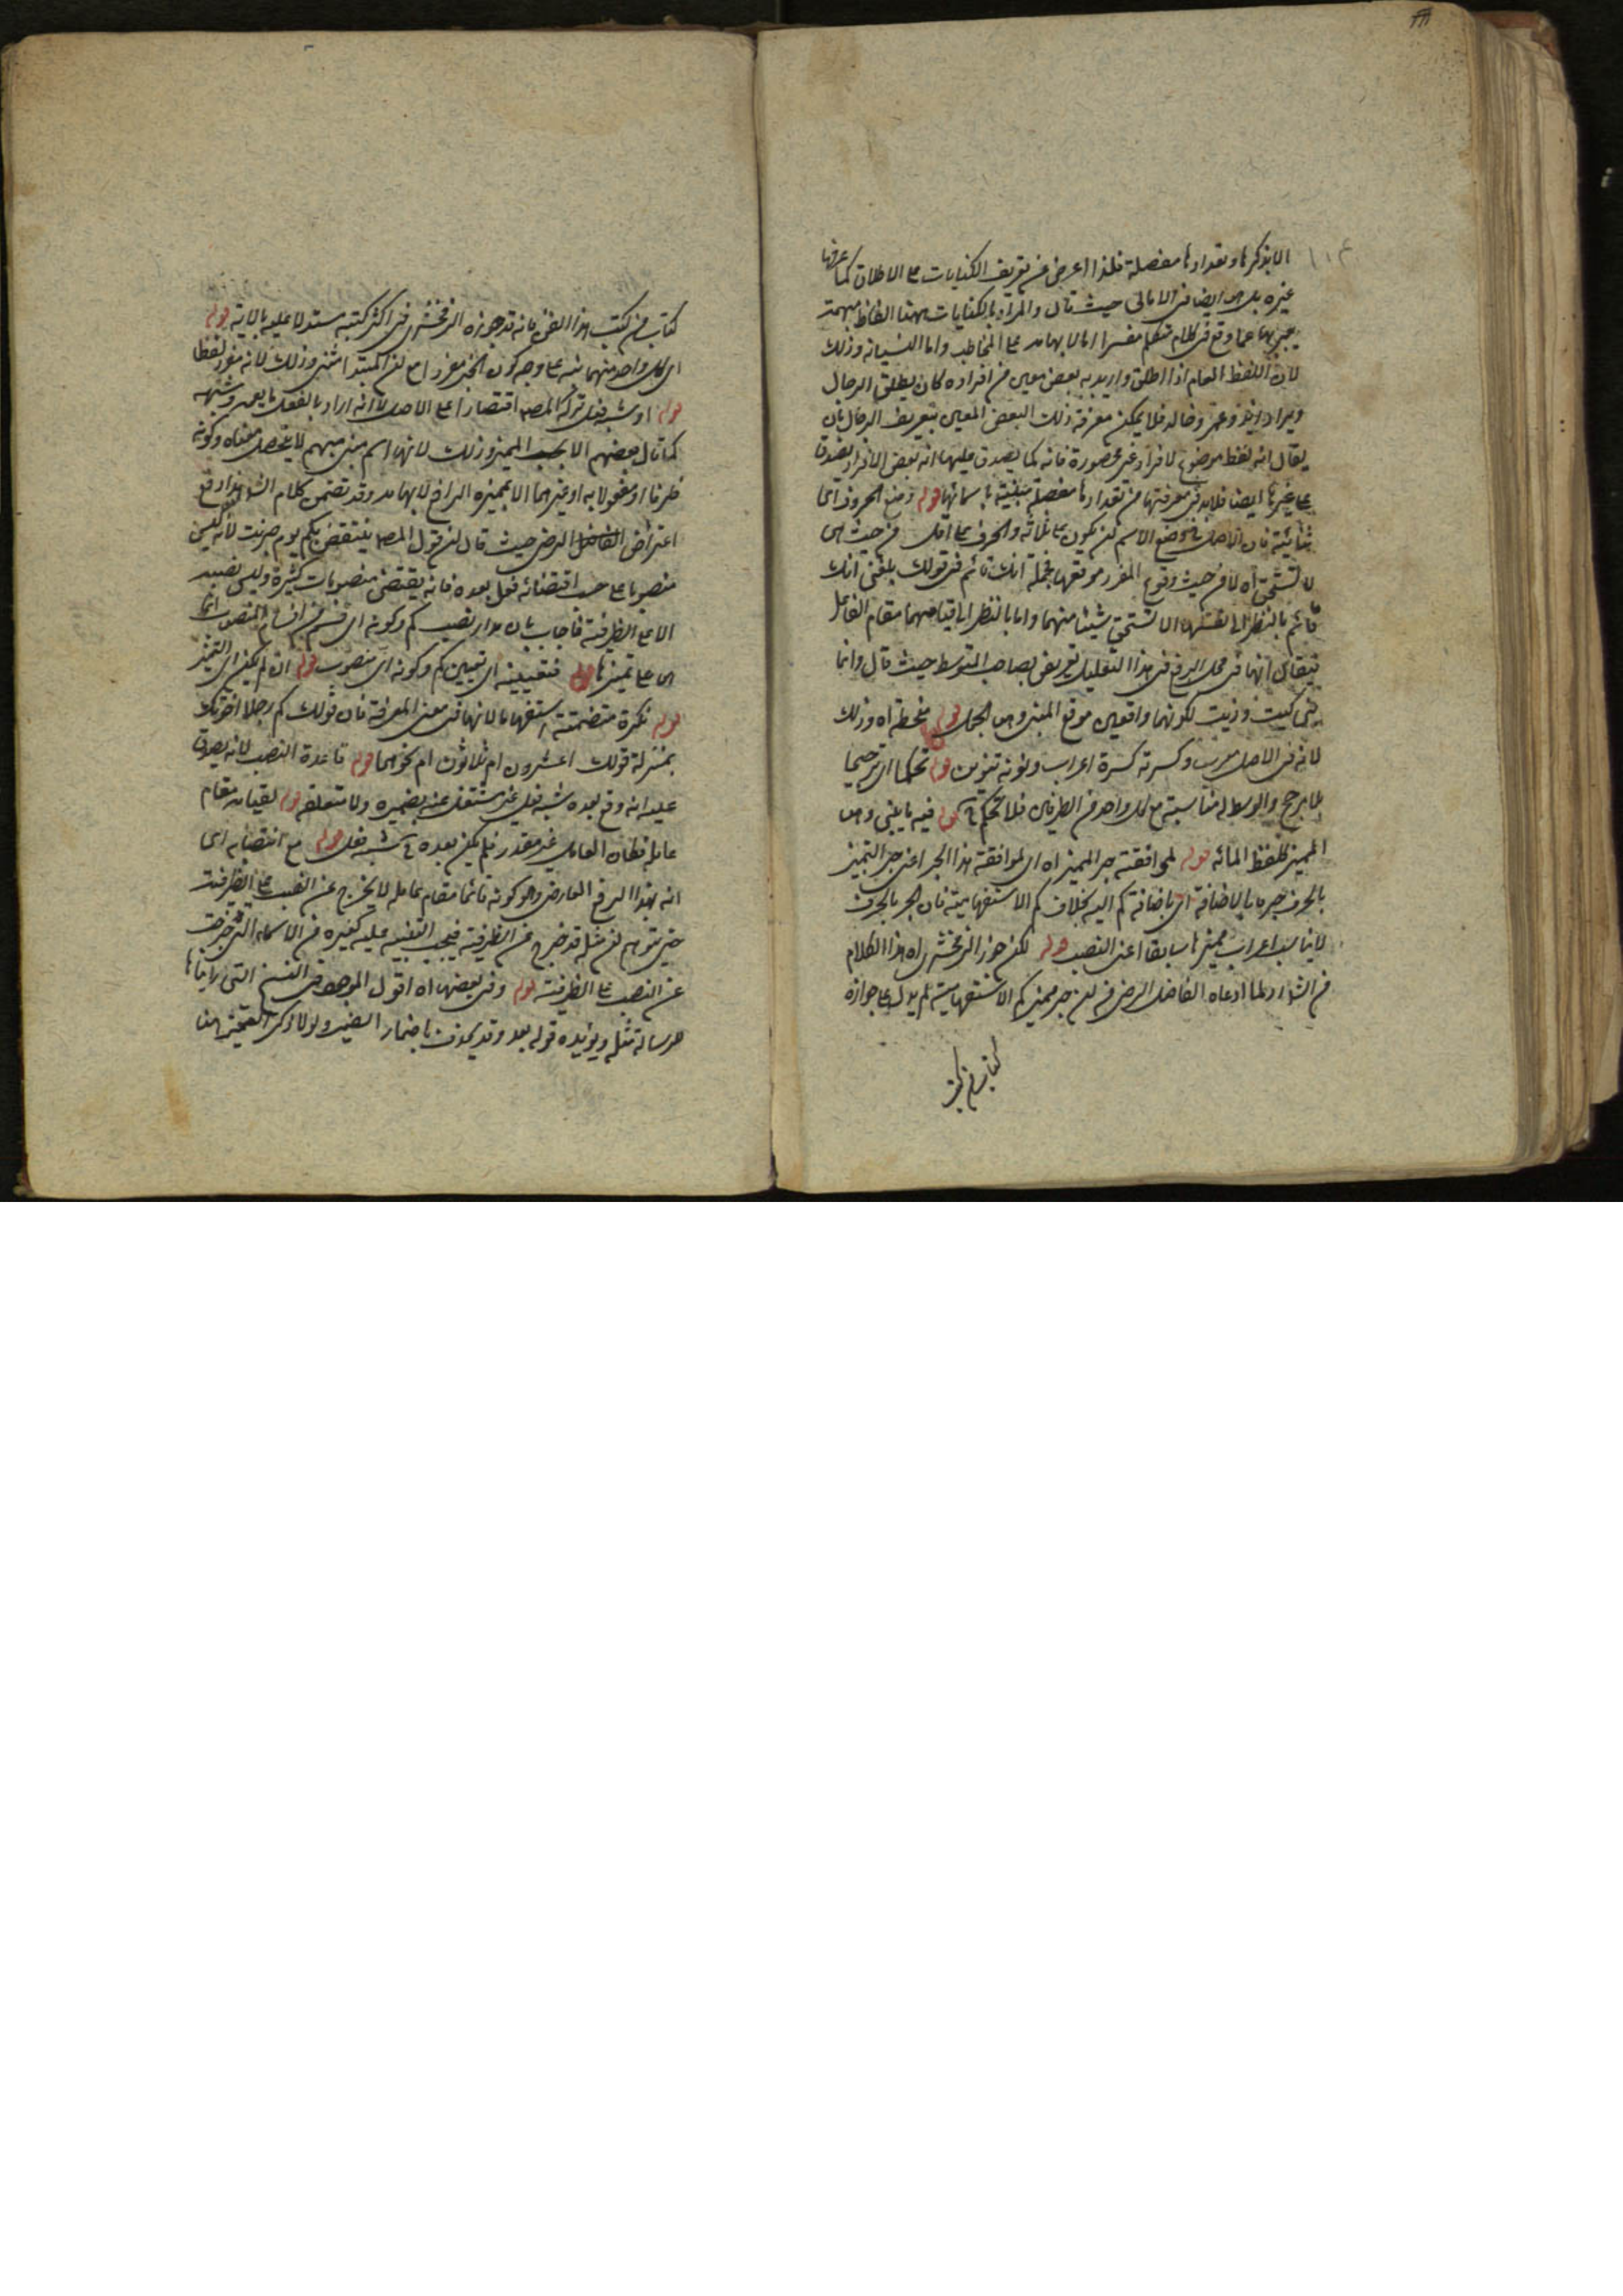 الا بذكرها وتعدادها مفصلة فلذا اعرض عن تعريف الكنايات على الاطلاق كما عرفها
غيره بل هو ايضا فى الامالى حيث قال والمراد بالكنايات ههنا الفاظ مبهمة
يعبر بها عما وقع فى كلام متكلم مفسرا اما لابهامه على المخاطب واما لنسيانه وذلك
لان اللفظ العام اذا اطلق واريد به بعض معين من افراده كان يطلق الرجال
ويراد زيد وعمرو وخالد فلا يمكن معرفة ذلك البعض المعين بتعريف الرجال بان
يقال انه لفظ موضوع لافراد غير محصورة فانه كما يصدق عليها انه بعض الافراد يصدق
على غيرها ايضا فلا بد فى معرفتها من تعدادها مفصلة مبنية باسمائها قوله وضع الحروف اى
ثنائية فان الاصل فى وضع الاسم ان يكون على ثلاثة والحرف على اقل من حيث هى
لا تستحق اه لا من حيث وقوع المفرد موقعها فجملة انك قائم فى قولك بلغنى انك
قائم بالنظر الى نفسها لا تستحق شيئا منهما واما بالنظر الى قيامهما مقام الفاعل
فيقال انها فى محل الرفع فى هذا التعليل تعريض بصاحب المتوسط حيث قال وانما
بنى كيت وذيت لكونهما واقعين موقع المبنى وهى الجمل قوله منحطة اه وذلك
لانه فى الاصل معرب وكسرته كسرة اعراب ونونه تنوين قوله تحكما اى ترجيحا
بلا مرجح والوسط له مناسبة مع كل واحد من الطرفين فلا تحكم قوله فيه ما يغنى وهى
المميز بلفظ المائة قوله لموافقة جر المميز اه اى لموافقة هذا الجر اعنى جر التمييز
بالحرف جره بالاضافة اى باضافة كم اليه بخلاف كم الاستفهامية فان الجر بالحرف
لا يناسب اعراب مميزها سابقا اعنى النصب قوله لكن جوز الزمخشرى اه هذا الكلام
من الشارح لما ادعاه الفاضل الرضى من ان جر مميز كم الاستفهامية لم يدل على جوازه
كتاب من كتب
كتاب من كتب هذا الفن فانه قد جوزه الزمخشرى فى اكثر كتبه مستدلا عليه بالاية قوله
اى كل واحد منهما بنى على وجه كون الخبر مفردا مع ان المبتدأ مثنى وذلك لانه مفرد لفظا
قوله او شبه فعل تركه المصـ اقتصارا على الاصل لا انه اراد بالفعل ما يعمه وشبهه
كما قال بعضهم الا بحسب المميز وذلك لانها اسم مبنى مبهم لا يتحصل معناه وكونه
ظرفا او مفعولا به او غيرهما الا بمميزه الرافع لابهامه وقد تضمن كلام الشارح دفع
اعتراض الفاضل الرضى حيث قال ان قول المصـ ينتقض بكم يوم ضربت لانه ليس
منصوبا على حسب اقتضائه فعل بعده فانه يقتضى منصوبات كثيرة وليس نصبه
الا على الظرفية فاجاب بان مدار نصب كم وكونه اى قسم من اقسام المنصوب انما
هى على تمييزها قوله فتعيينه اى تعيين كم وكونه اى منصوب قوله ان لم يكن اى التمييز
قوله نكرة متضمنة استفهاما لانها فى معنى المعرفة فان قولك كم رجلا اخوتك
بمنزلة قولك اعشرون ام ثلاثون ام نحوهما قوله قاعدة النصب لانه يصدق
عليه انه وقع بعده شبه فعل غير مشتغل عنه بضميره ولا متعلقه قوله لقيامه مقام
عامله فكان العامل غير مقدر فلم يكن بعده شبه فعل قوله مع انتصابه اى
انه بهذا الرفع العارض وهو كونه قائما مقام عامله لا يخرج عن النصب على الظرفية
حتى يتوهم ان مثله قد خرج عن الظرفية فيجب التنبيه عليه كغيره من الاسماء التى خرجت
عن النصب على الظرفية قوله وفى بعضها اه اقول الموجود فى النسخ التى رايناها
من رسالة مثله ويؤيده قوله بعد وقد يحذف باضمار الضمير ولولا ذكر التمييز هنا